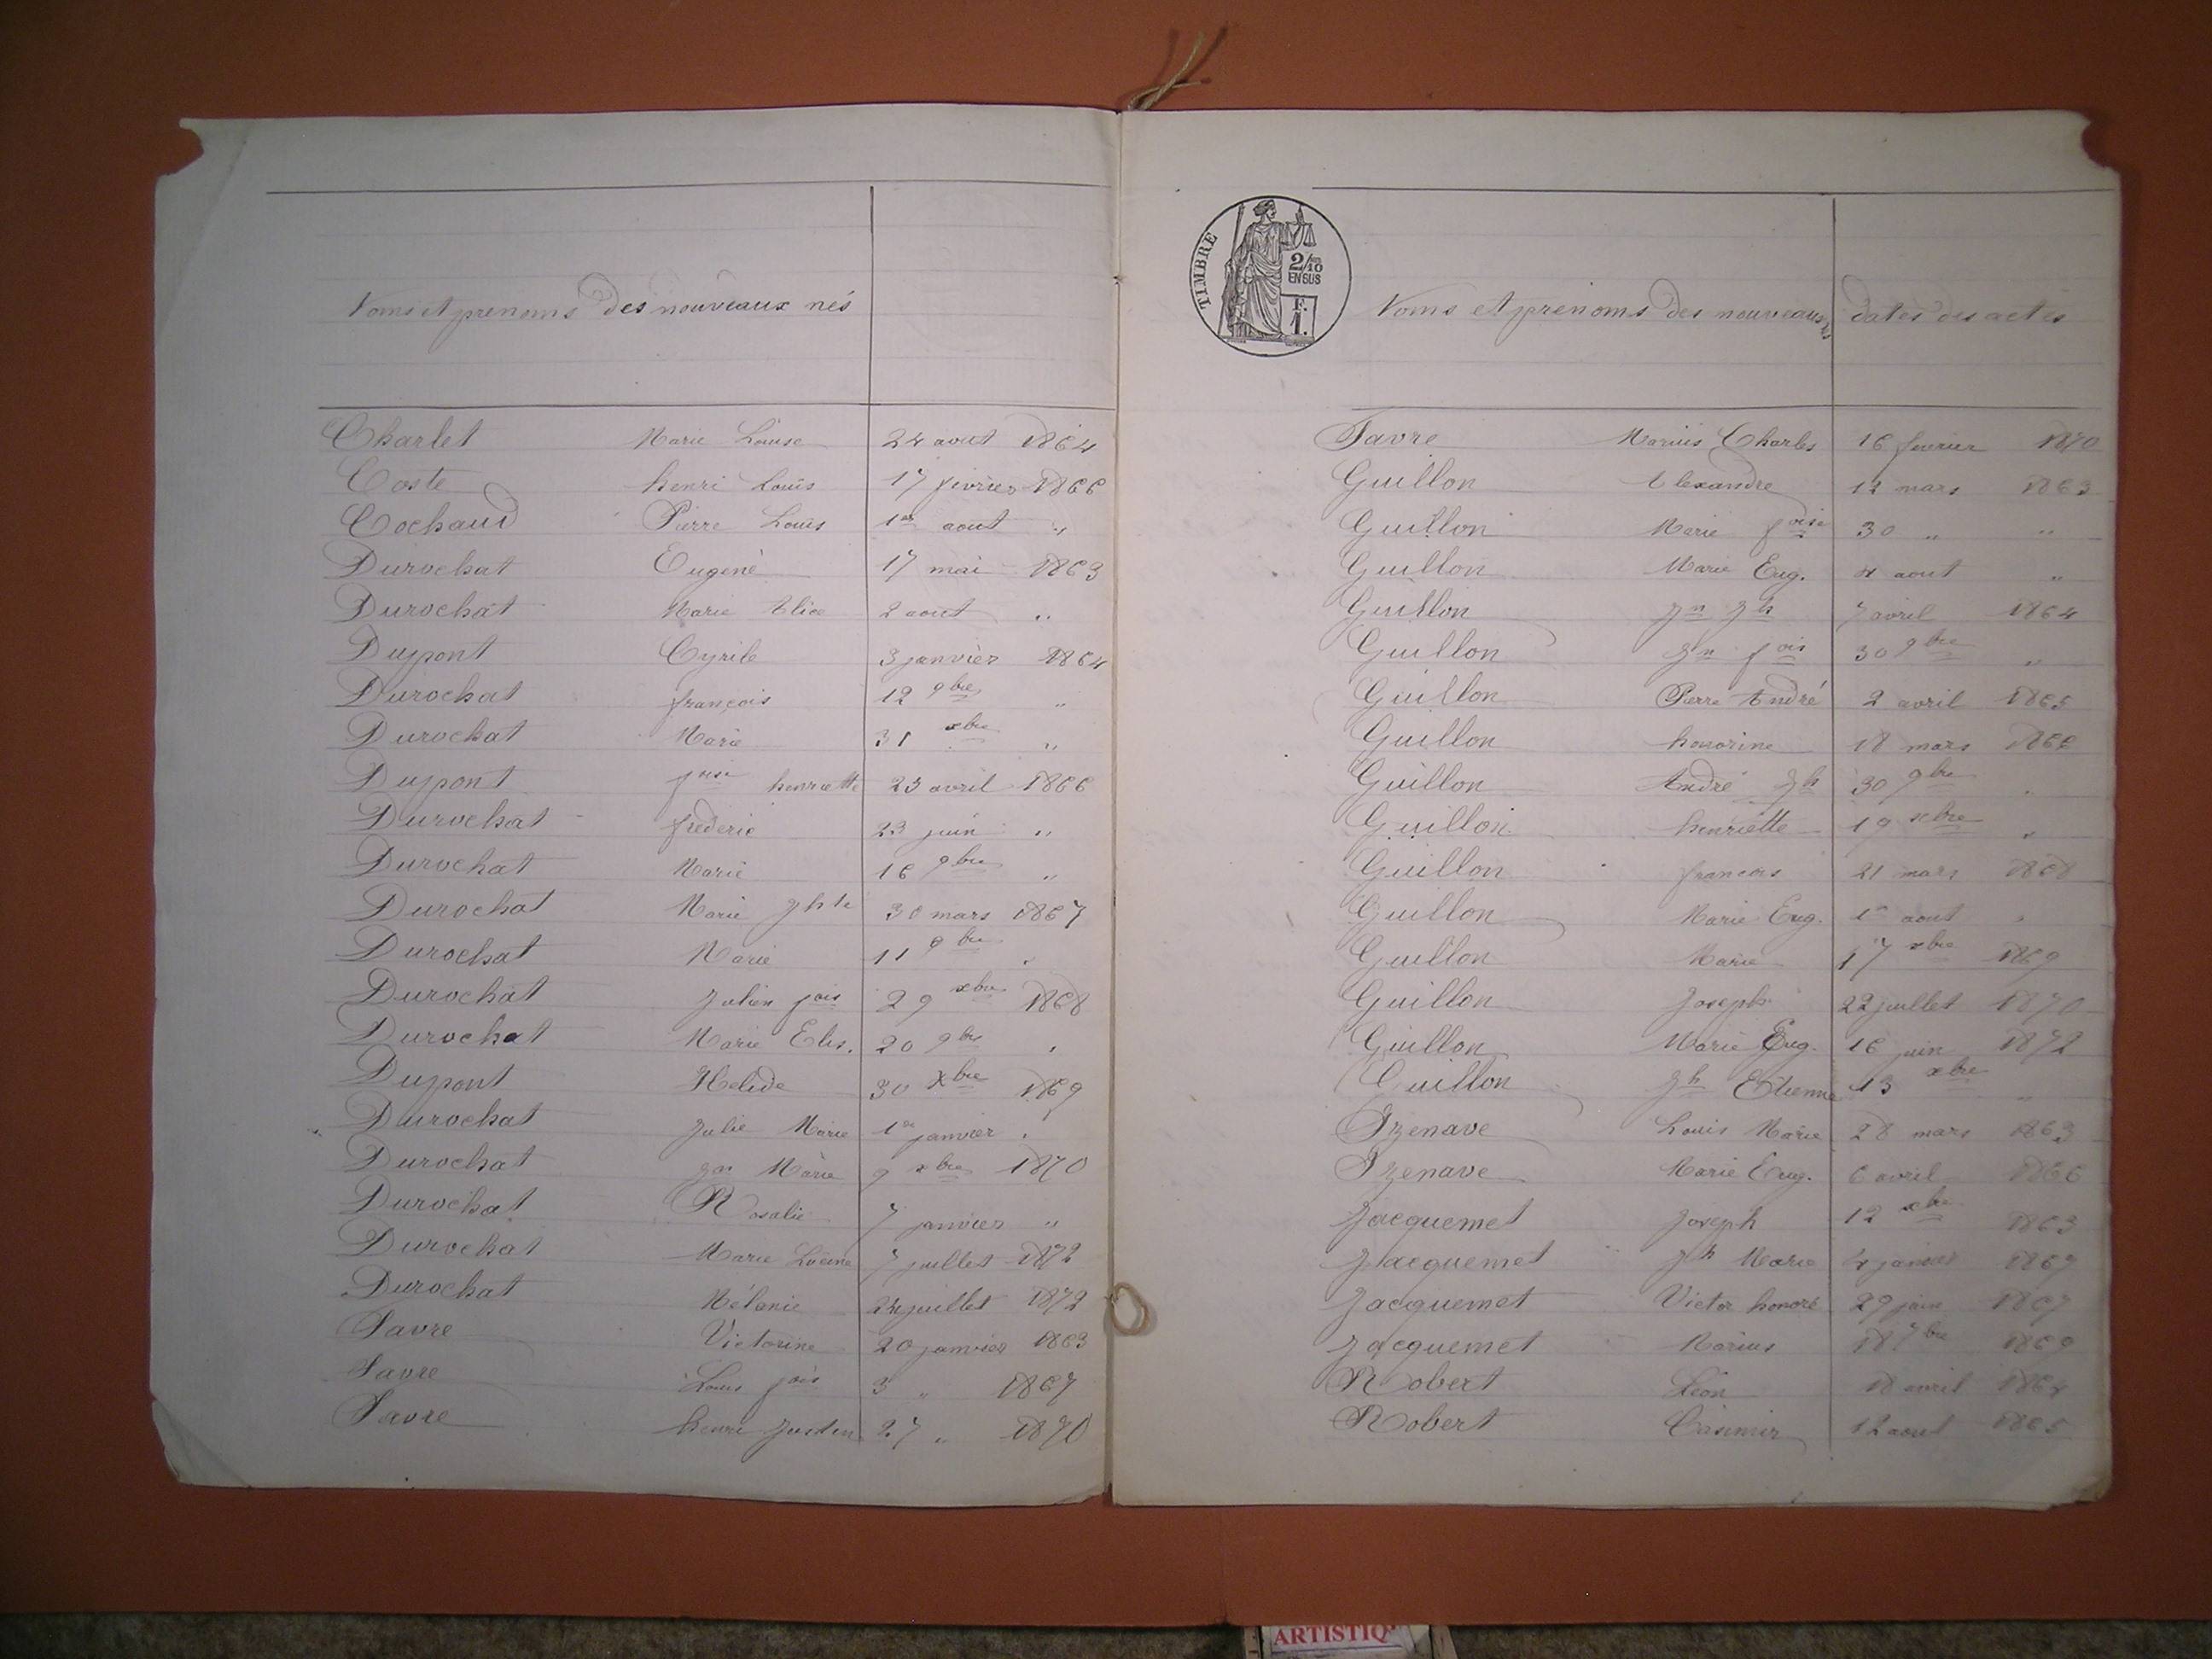 Noms et prénoms des nouveaux nés
Charlet Marie Louise 24 aout 1864
Coste henri Louis 17 février 1866
Cochaud Pierre Louis 1er aout "
Durochat Eugène 17 mai 1863
Durochat Marie Alice 2 aout "
Dupont Cyrile 3 janvier 1864
Durochat françois 12 9bre "
Durochat Marie 31 xbre "
Dupont henriette 23 avril 1866
Durochat frederic 23 juin "
Durochat Marie 16 9bre "
Durochat Marie Jhte 30 mars 1867
Durochat Marie 11 9bre "
Durochat Julien fois 29 xbre 1868
Durochat Marie Elis. 20 9bre "
Dupont Helide 30 Xbre 1869
Durochat Julie Marie 1er janvier "
Durochat Jn Marie 9 xbre 1870
Durochat Rosalie 7 janvier "
Durochat Marie 7 juillet 1872
Durochat Mélanie 24 juillet 1872
Favre Victorine 20 janvier 1863
Favre Louis fois 3 " 1867
Favre henri Justin 27 " 1870
TIMBRE
2/10
EN SUS
F.
1.
Noms et prénoms des nouveaux nés dates des actes
Favre Marius Charles 16 février 1870
Guillon Alexandre 12 mars 1863
Guillon Marie foise 30 " "
Guillon Marie Eug. 4 aout "
Guillon Jn Jh 7 avril 1864
Guillon Jn fois 30 9bre "
Guillon Pierre André 2 avril 1865
Guillon honorine 18 mars 1866
Guillon André Jh 30 9bre "
Guillon henriette 19 xbre "
Guillon francois 21 mars 1868
Guillon Marie Eug. 1er aout "
Guillon Marie 17 xbre 1869
Guillon Joseph 22 juillet 1870
Guillon Marie Eug. 16 juin 1872
Guillon Jh Etienne 13 xbre "
Izenave Louis Marie 28 mars 1863
Izenave Marie Eug. 6 avril 1866
Jacquemet Joseph 12 xbre 1863
Jacquemet Jh Marie 4 janvier
Jacquemet Victor honoré 29 juin 1867
Jacquemet Marius 18 7bre 1869
Robert Léon 18 avril 1864
Robert Casimir 12 aout 1865
ARTISTIQ